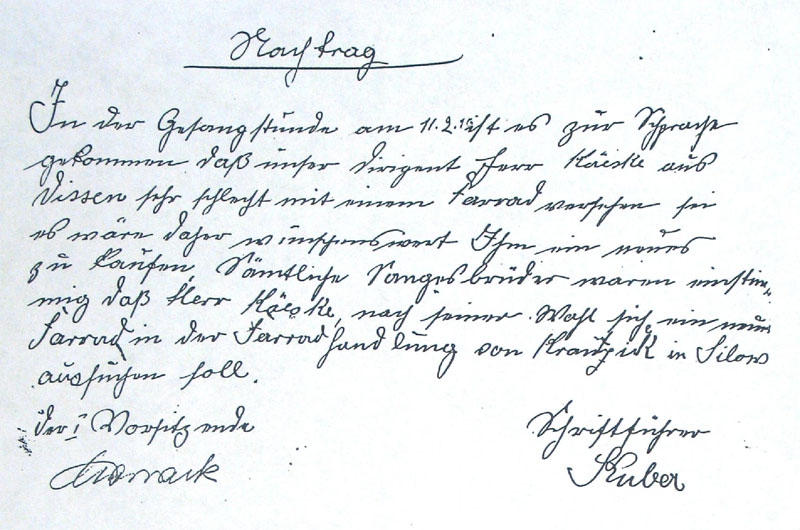 Nachtrag
In der Gesangstunde am 11.2. ist es zur Sprache
gekommen daß unser Dirigent Herr Käeske aus
Dissen sehr schlecht mit einem Farrad versehen sei
es wäre daher wünschenswert Ihm ein neues
zu kaufen, Sämtliche Sangesbrüder waren einstim-
mig daß Herr Käeske, nach seiner Wahl sich ein neues
Farrad in der Farradhandlung von in Silow
aussuchen soll.
der I Vorsitzende Schriftführer
Kuber